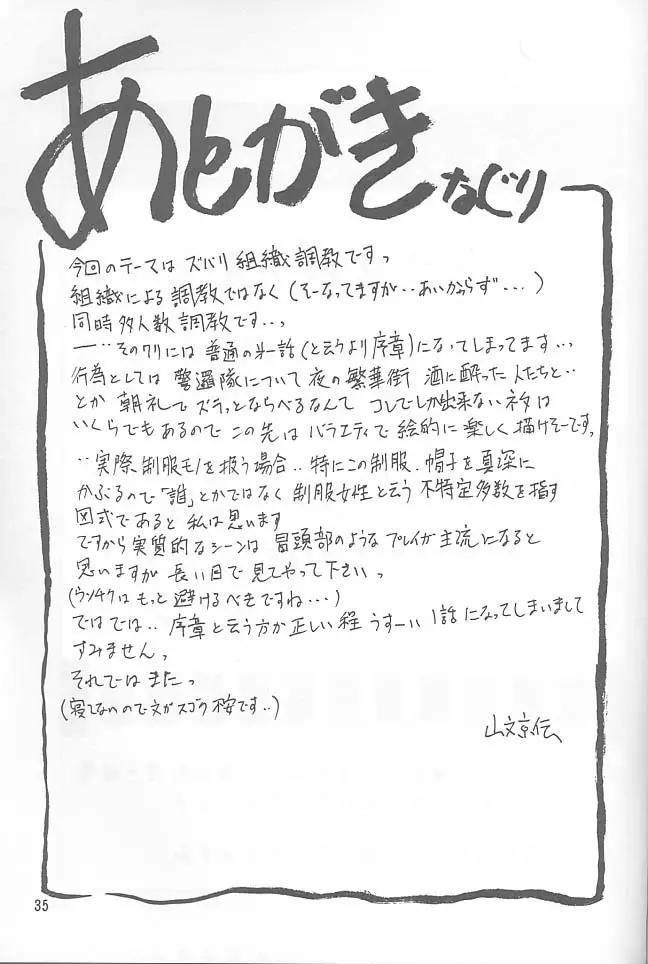 あとがき なぐり
今回のテーマは ズバリ 組織調教ですっ
組織による 調教ではなく (そーなってますが‥あいかわらず…)
同時多人数調教です…っ
一…そのワリには 普通の第一話(と云うより序章)になってしまってます…っ
行為としては 警邏隊について 夜の繁華街 酒に酔った人たちと‥
とか 朝礼で ズラっとならべるなんて コレでしか出来ないネタは
いくらでもあるので この先は バラエティで 絵的に 楽しく 描けそーですっ
‥実際、制服モノを扱う場合‥特にこの制服、帽子を真深に
かぶるので「誰」とかではなく 制服女性と云う 不特定多数を指す
図式であると 私は思います
ですから実質的なシーンは 冒頭部のような プレイが主流になると
思いますが 長い目で 見てやって下さいっ
(ウンチクは もっと 避けるべきですね…)
ではでは‥ 序章と云う方が正しい程 うすーい 1話になってしまいまして
すみませんっ
それでは またっ
(寝てないので文がスゴク 不安です‥)
山文京伝
35